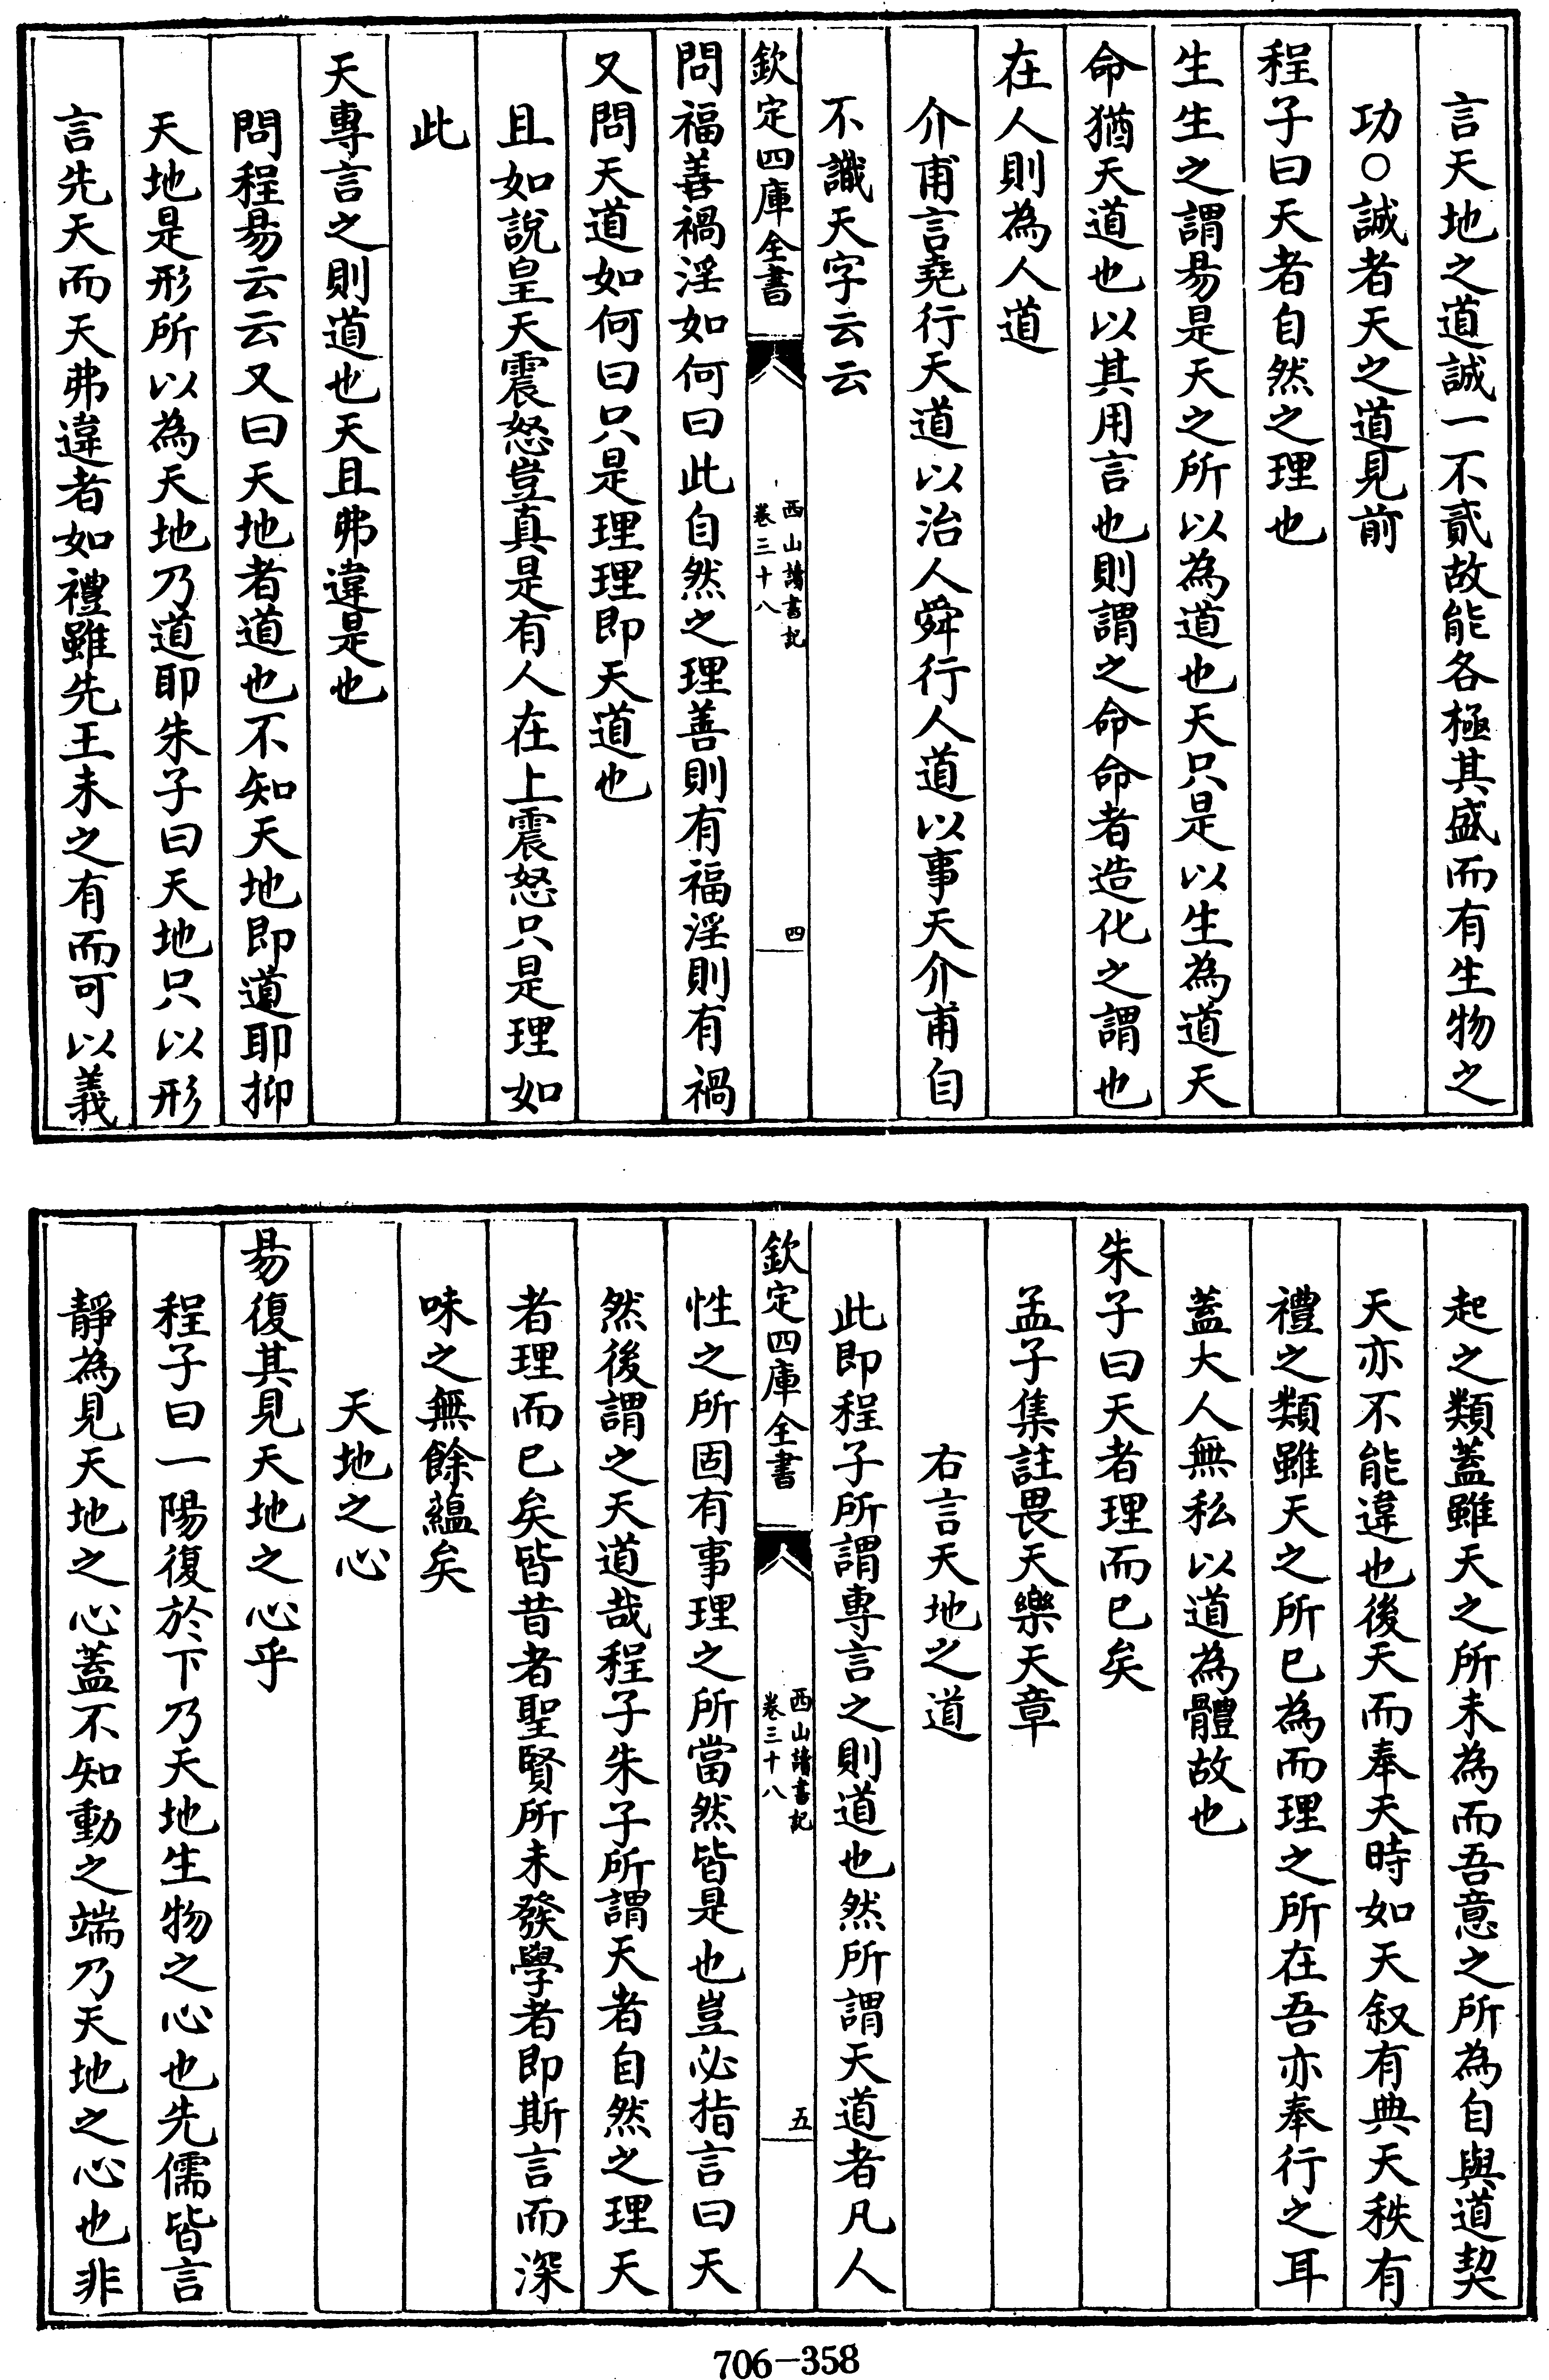 言天地之道誠一不貳故能各極其盛而有生物之
功○誠者天之道見前
程子曰天者自然之理也
生生之謂易是天之所以為道也天只是以生為道天
命猶天道也以其用言也則謂之命命者造化之謂也
在人則為人道
介甫言堯行天道以治人舜行人道以事天介甫自
不識天字云云
欽定四庫全書
西山讀書記
卷三十八
四
問福善禍淫如何曰此自然之理善則有福淫則有禍
又問天道如何曰只是理理即天道也
且如說皇天震怒豈真是有人在上震怒只是理如
此
天專言之則道也天且弗違是也
問程易云云又曰天地者道也不知天地即道耶抑
天地是形所以為天地乃道耶朱子曰天地只以形
言先天而天弗違者如禮雖先王未之有而可以義
起之類蓋雖天之所未為而吾意之所為自與道契
天亦不能違也後天而奉天時如天叙有典天秩有
禮之類雖天之所已為而理之所在吾亦奉行之耳
蓋大人無私以道為體故也
朱子曰天者理而已矣
孟子集註畏天樂天章
右言天地之道
此即程子所謂專言之則道也然所謂天道者凡人
欽定四庫全書
西山讀書記
卷三十八
五
性之所固有事理之所當然皆是也豈必指言曰天
然後謂之天道哉程子朱子所謂天者自然之理天
者理而已矣皆昔者聖賢所未發學者即斯言而深
味之無餘蘊矣
天地之心
易復其見天地之心乎
程子曰一陽復於下乃天地生物之心也先儒皆言
靜為見天地之心蓋不知動之端乃天地之心也非
706-358